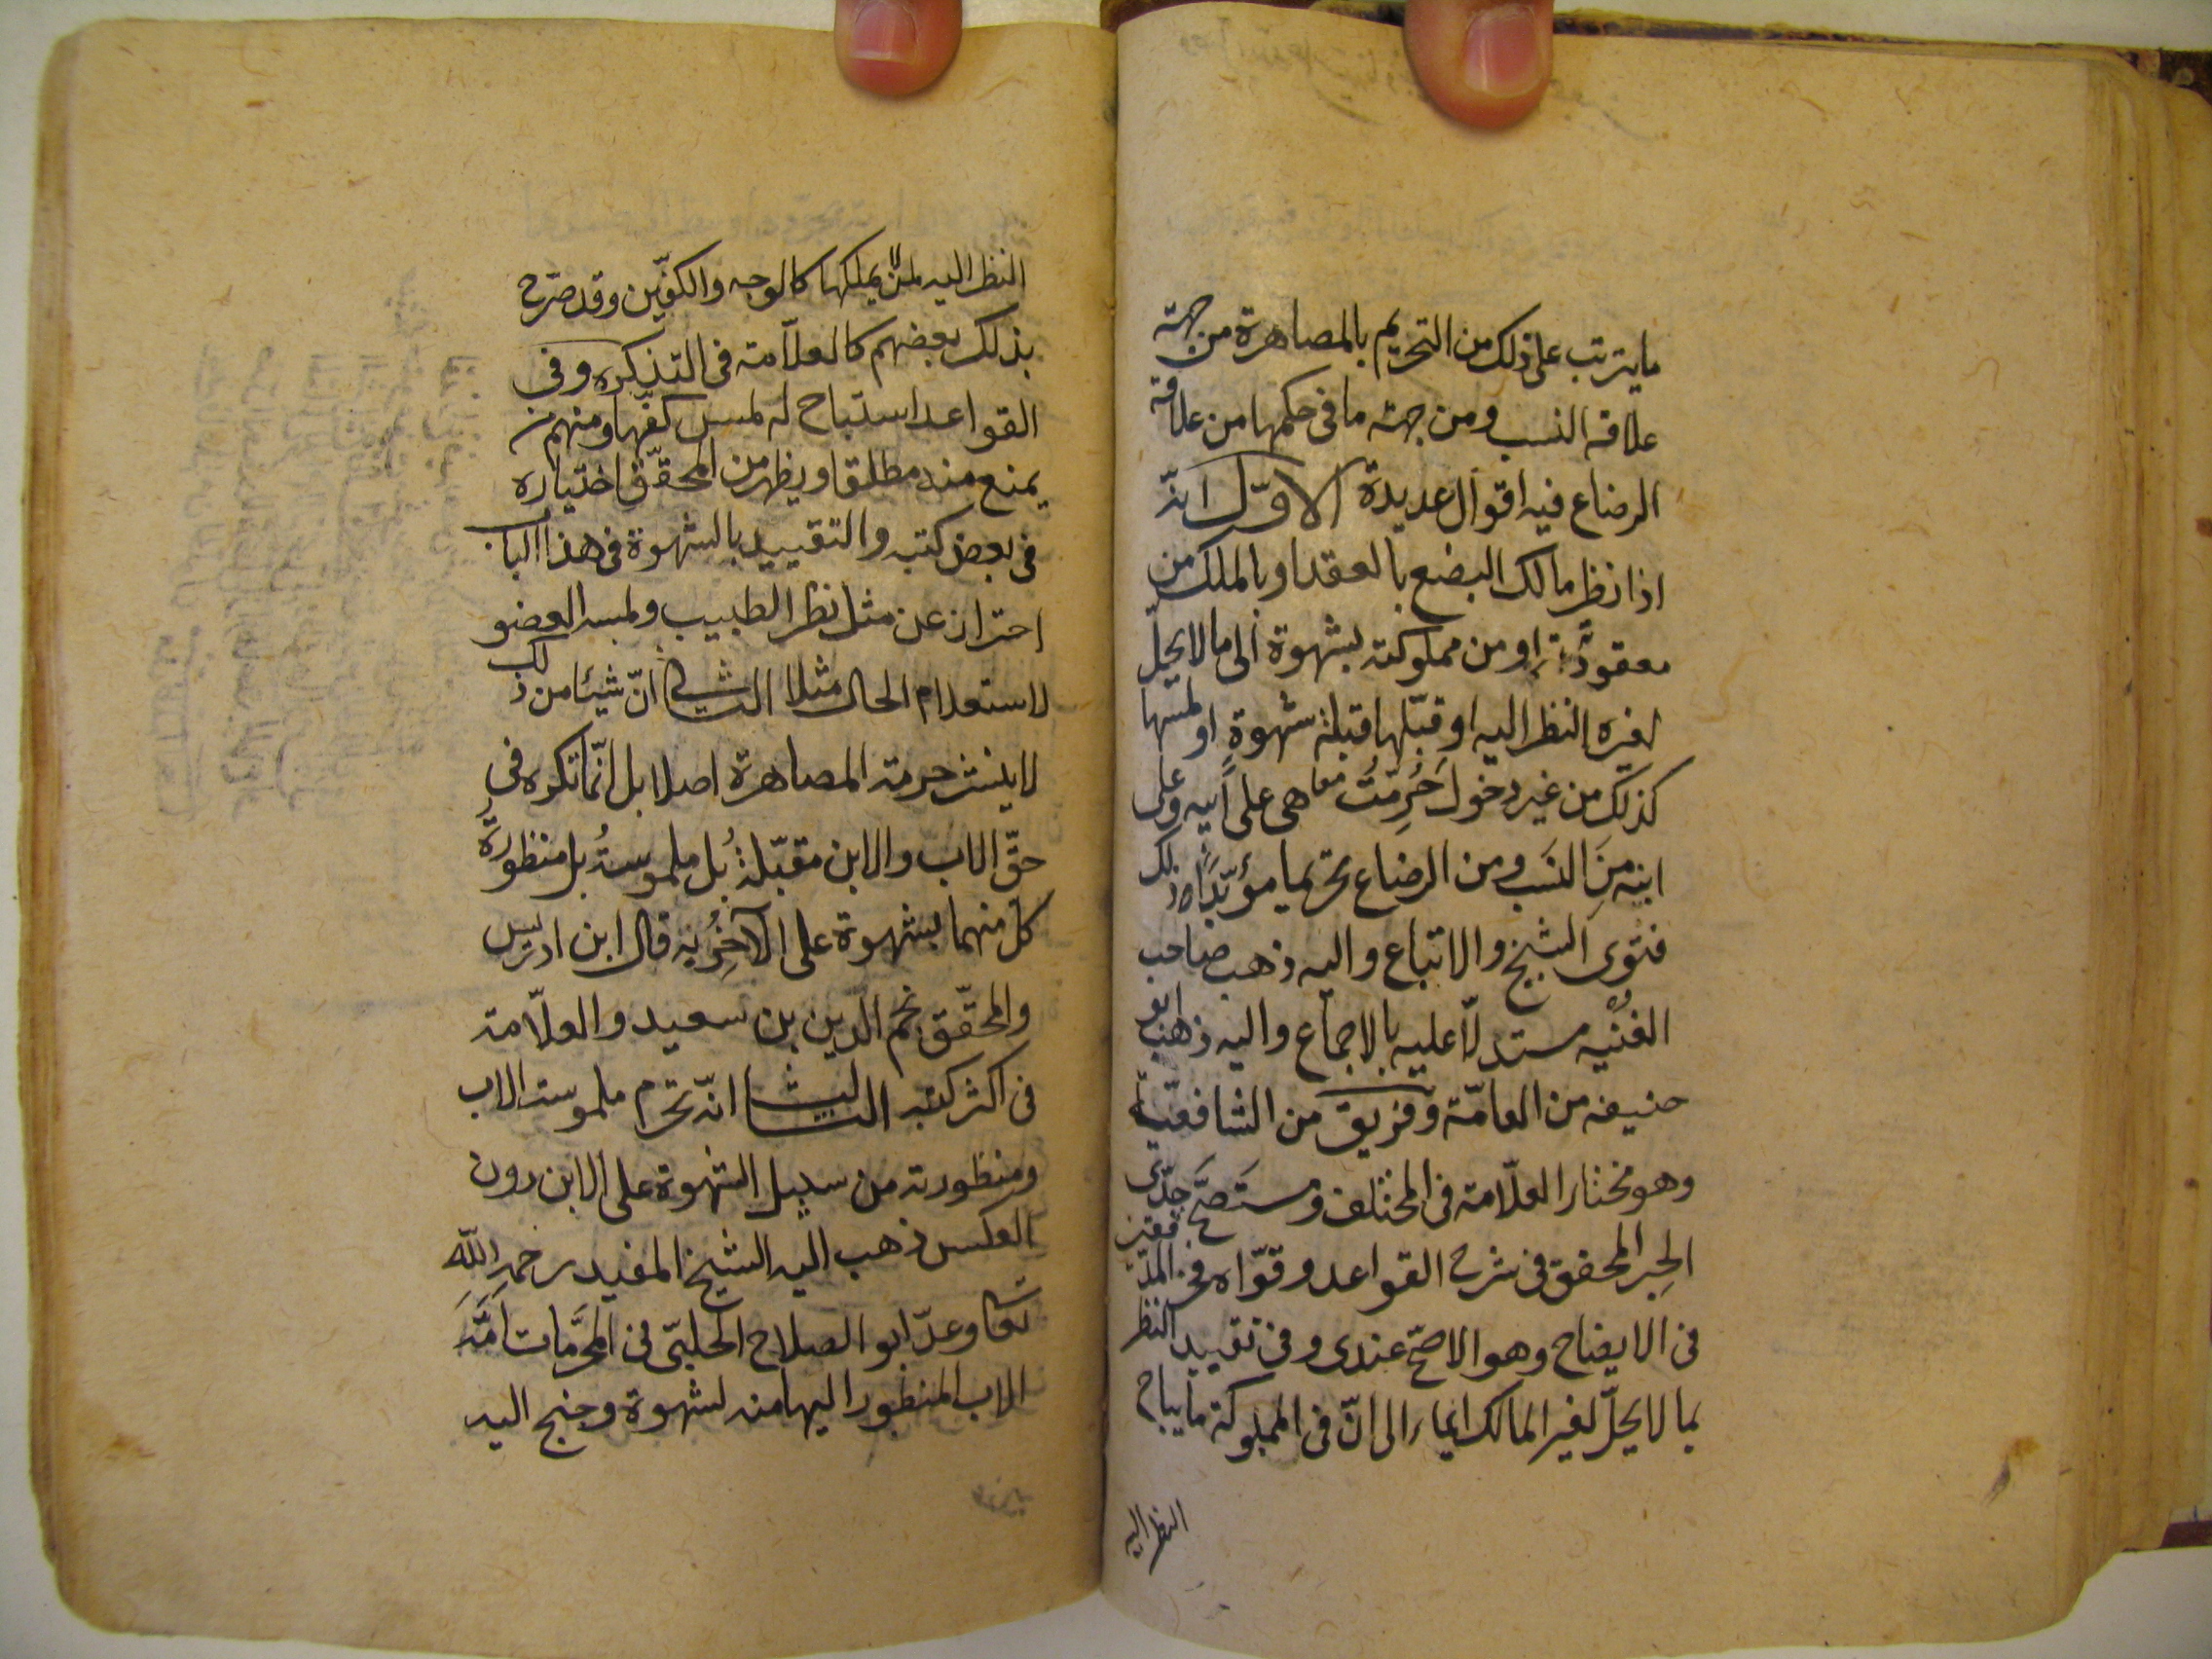 ما يترتب على ذلك من التحريم بالمصاهرة من جهة
علاقة النسب ومن جهة ما فى حكمها من علاقة
الرضاع فيه اقوال عديدة الاوّل انّه
اذا نظر مالك البضع بالعقد او بالملك من
معقودته او من مملوكته بشهوة الى ما لا يحلّ
لغيره النظر اليه او قبّلها قبلة شهوة او لمسها
كذلك من غير دخول حُرِّمَتْ معا هى على ابيه وعلى
ابنه مِنَ النسَب ومن الرضاع تحريما مؤبّدًا وذلك
فتوى الشيخ والاتباع واليه ذهب صاحب
الغنْيه مستدلّا عليه بالاجماع واليه ذهب ابو
حنيفه من العامّة وفريق من الشافعيّة
وهو مختار العلّامة فى المختلف ومستَصَحّ جدّى
الحِبر المحقق فى شرح القواعد وقوّاه فخر المدققين
فى الايضاح وهو الاصحّ عندى وفى تقييد النظر
بما لا يحلّ لغير المالك ايماء الى انّ فى المملوكة ما يباح
النظر اليه
النظر اليه لمن لا يملكها كالوجه والكفّين وقد صرّح
بذلك بعضهم كالعلاّمة فى التذكره وفى
القواعد استباح له لمس كفّيها ومنهم من
يمنع منه مطلقا ويظهر من المحقّق اختياره
فى بعض كتبه والتقييد بالشهوة فى هذا الباب
احتراز عن مثل نظر الطبيب ولمسه العضو
لاستعلام الحال مثلا الثانى انّ شيئا من ذلك
لا ينشر حرمة المصاهرة اصلا بل انّما تكره فى
حقّ الاب والابن مقبّلةُ بل ملموسةُ بل منظورةُ
كل منهما بشهوة على الآخِر به قال ابن ادريس
والمحقّق نجم الدين بن سعيد والعلاّمة
فى اكثر كتبه الثالث انّه تحرم ملموسة الاب
ومنظورته من سبيل الشهوة على الابن دون
العكس ذهب اليه الشيخ المفيد رحمه الله
تعالى وعدّ ابو الصلاح الحلبىّ فى المحرَّمات امَةَ
الاب المنظور اليها منه لشهوة وجنح اليه